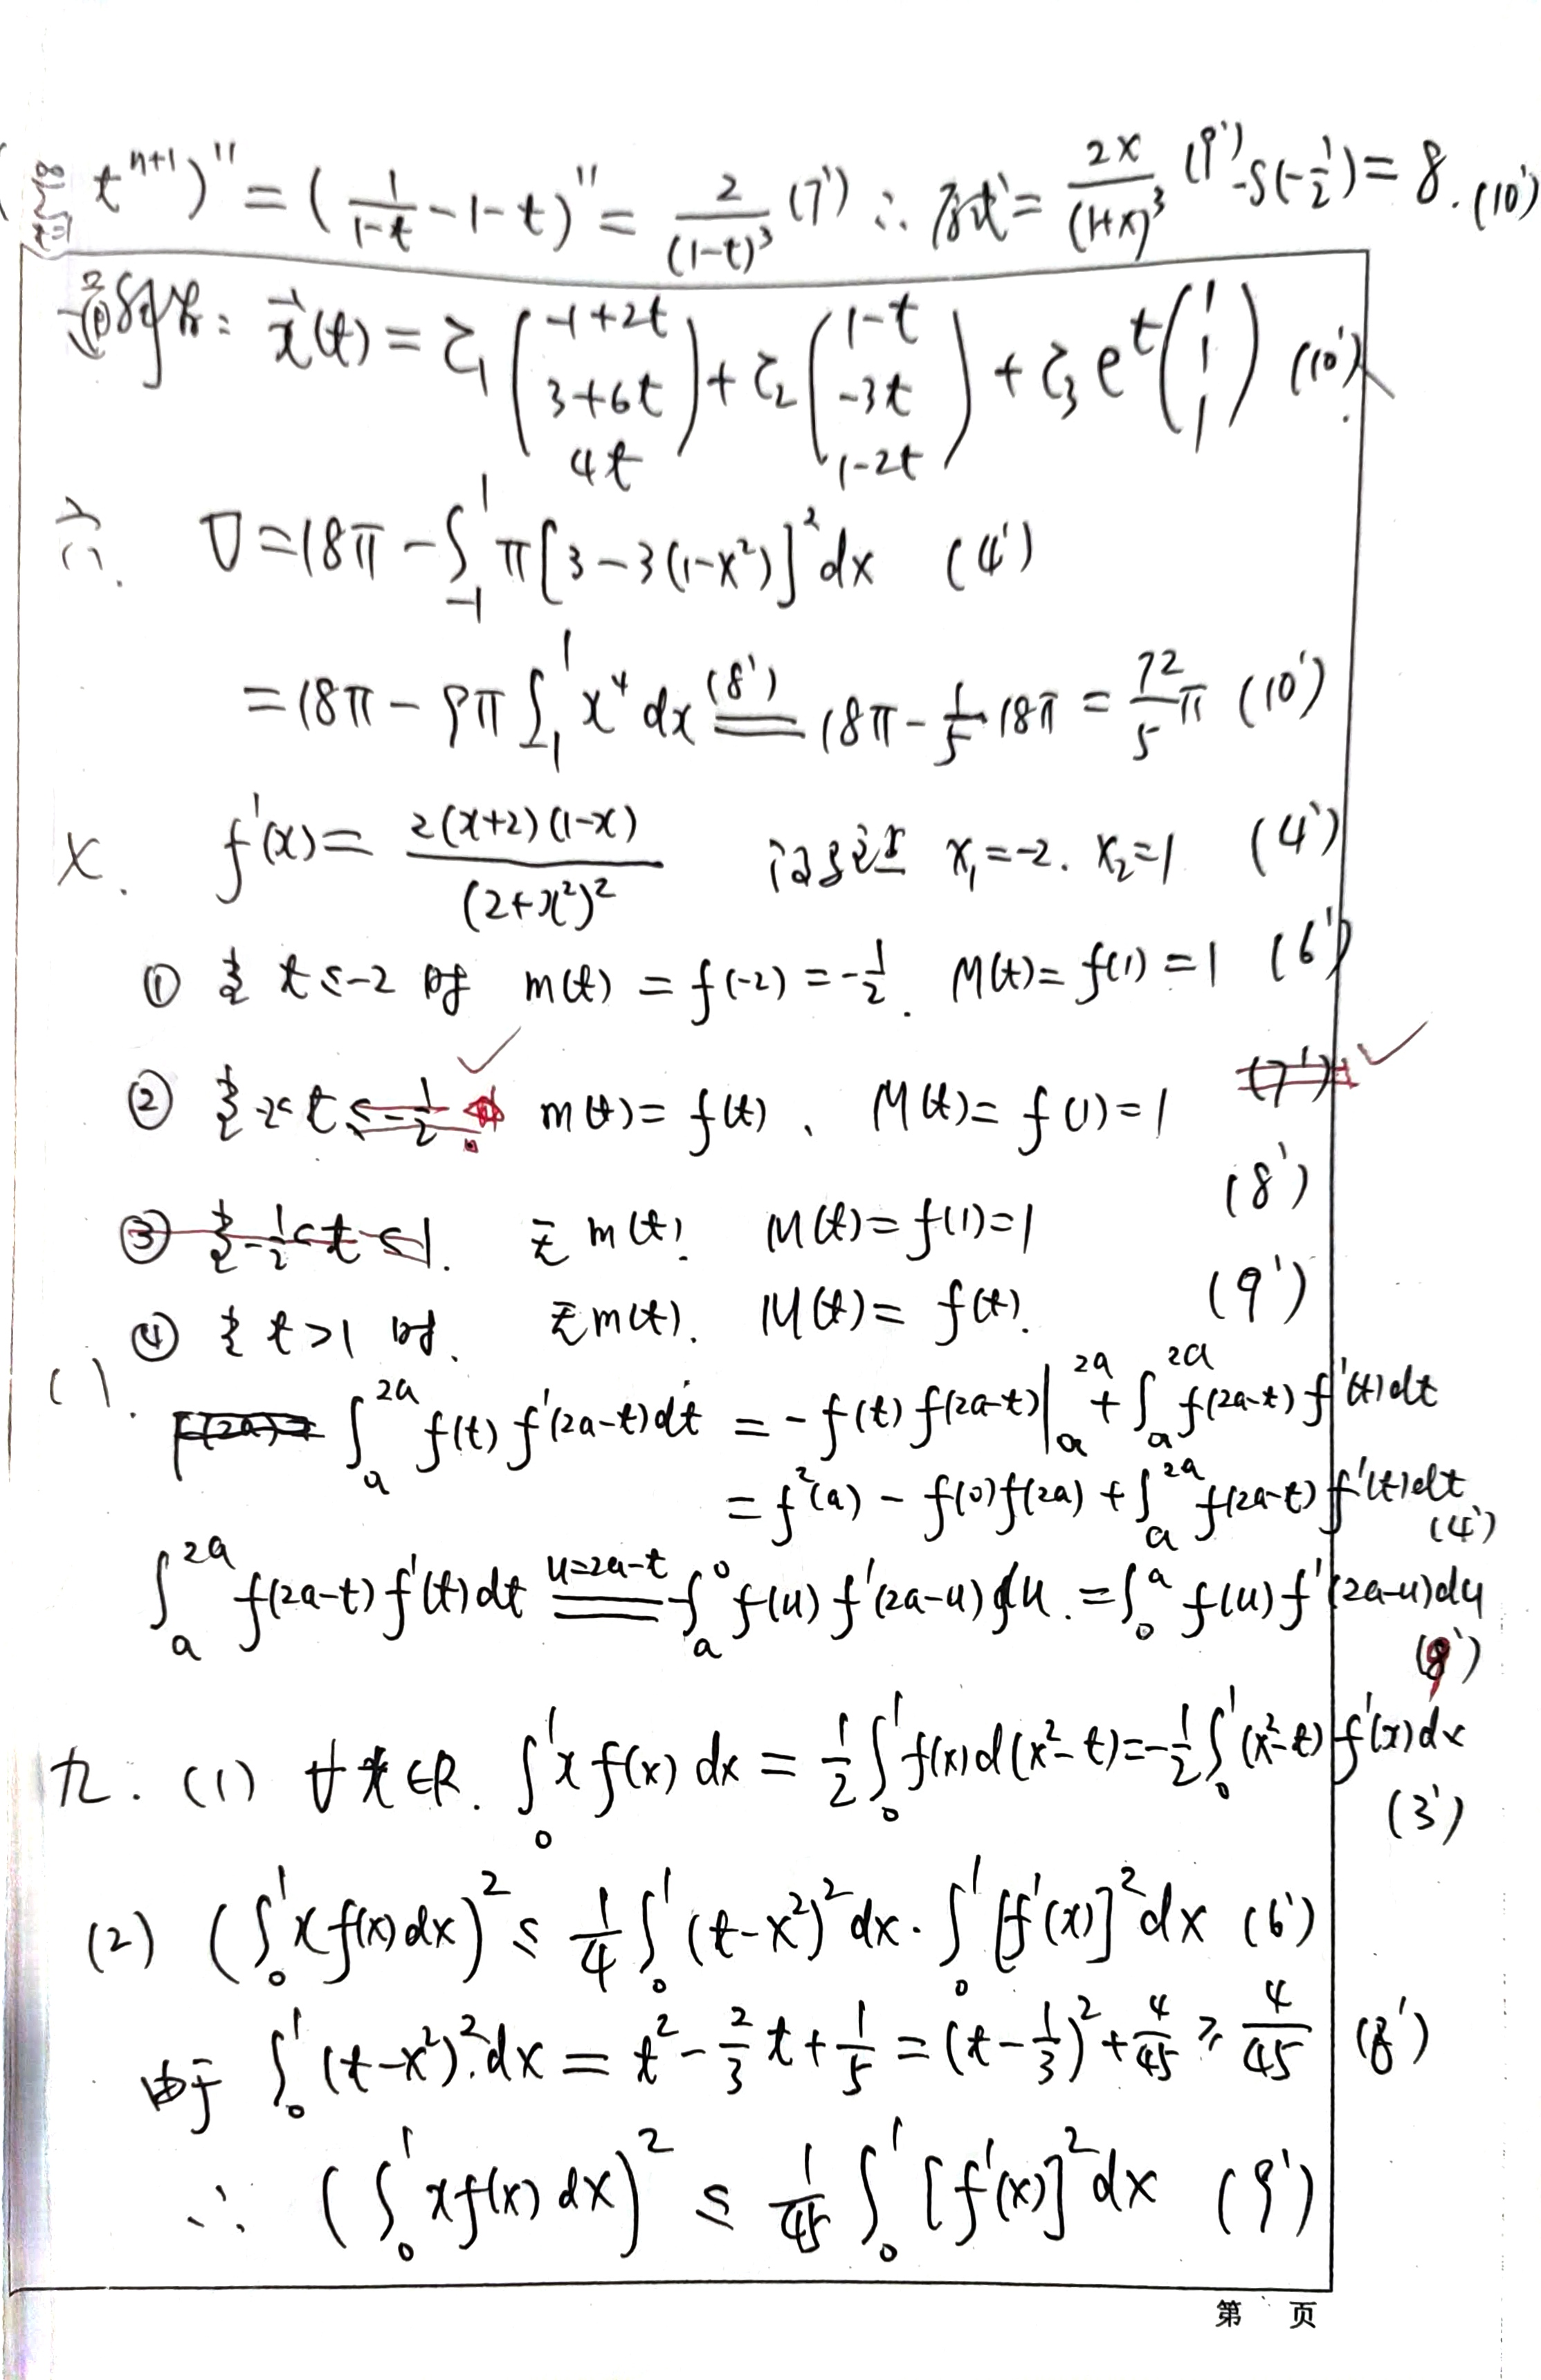 (∑_{n=1}^{∞} t^{n+1})'' = (1/(1-t) - 1 - t)'' = 2/(1-t)^3 (7') ∴ 原式 = 2x/(1+x)^3 (9') -S(-1/2) = 8. (10')
通解为: x⃗(t) = C₁(-1+2t, 3+6t, 4t) + C₂(1-t, -3t, 1-2t) + C₃e^t(1, 1, 1) (10').
六. V = 18π - ∫_{-1}^{1} π[3-3(1-x²)]²dx (4')
= 18π - 9π∫_{-1}^{1} x⁴dx (8') = 18π - 1/5·18π = 72/5 π (10')
七. f'(x) = 2(x+2)(1-x)/(2+x²)² 驻点 x₁=-2. x₂=1 (4')
① 当 t≤-2 时 m(t) = f(-2) = -1/2. M(t) = f(1) = 1 (6')
② 当 -2<t≤-1/2 m(t) = f(t), M(t) = f(1) = 1 (7')
(8')
③ 当 -1/2<t≤1. 无m(t). M(t) = f(1) = 1
④ 当 t>1 时. 无m(t). M(t) = f(t). (9')
八. f(2a) = ∫_a^{2a} f(t)f'(2a-t)dt = -f(t)f(2a-t)|_a^{2a} + ∫_a^{2a} f(2a-t)f'(t)dt
= f²(a) - f(0)f(2a) + ∫_a^{2a} f(2a-t)f'(t)dt (4')
∫_a^{2a} f(2a-t)f'(t)dt (u=2a-t) = -∫_a^0 f(u)f'(2a-u)du. = ∫_0^a f(u)f'(2a-u)du
(9')
九. (1) ∀t∈R. ∫_0^1 xf(x)dx = 1/2∫_0^1 f(x)d(x²-t) = -1/2∫_0^1 (x²-t)f'(x)dx
(3')
(2) (∫_0^1 xf(x)dx)² ≤ 1/4∫_0^1 (t-x²)²dx·∫_0^1 [f'(x)]²dx (6')
由于 ∫_0^1 (t-x²)²dx = t² - 2/3t + 1/5 = (t-1/3)² + 4/45 ≥ 4/45 (8')
∴ (∫_0^1 xf(x)dx)² ≤ 1/45∫_0^1 [f'(x)]²dx (9')
第 页